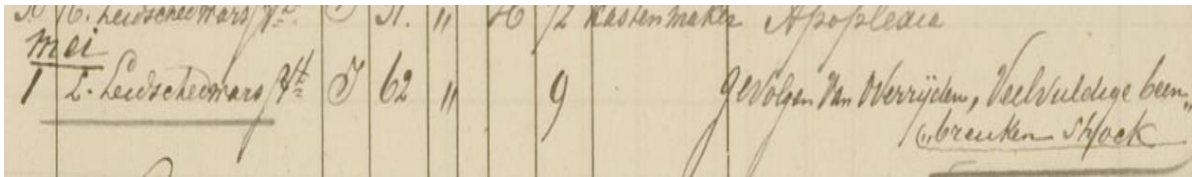 30 C. Leidschedwars/str I 31. " H 72 Kastenmaker Apoplexia
mei
1 L. Leidschedwars/str I 62 " 9 gevolgen van overrijden, Veelvuldige been„
„breuken Shock